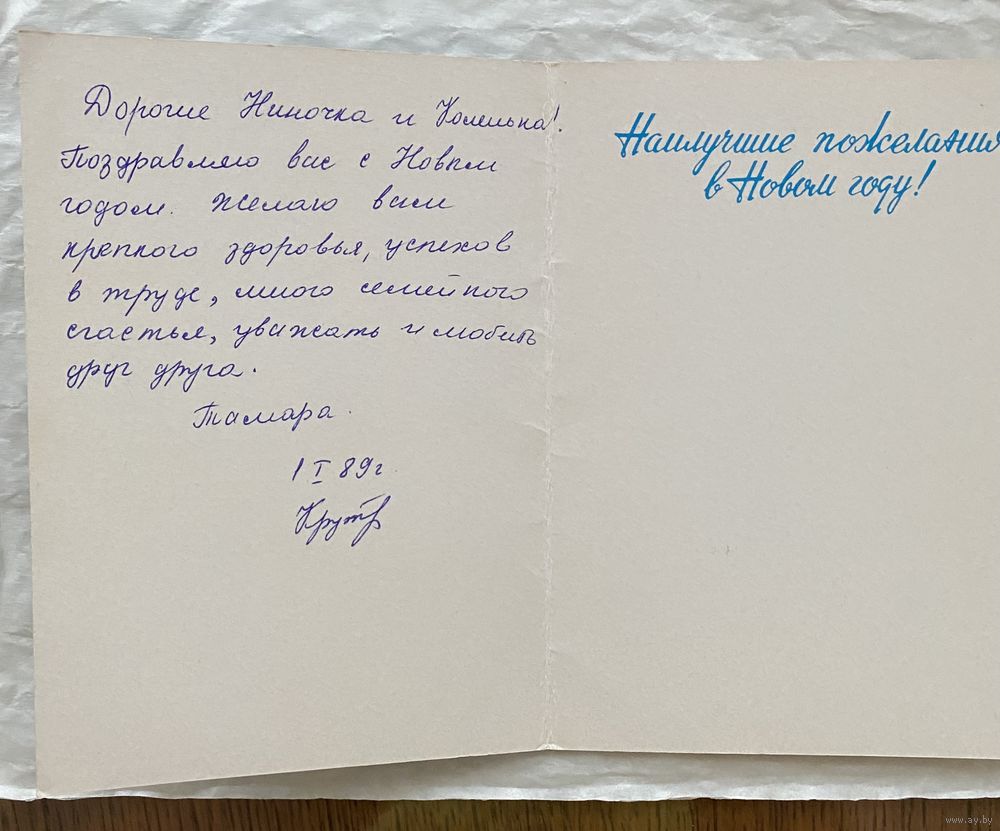 Дорогие Ниночка и Коленька!
Поздравляю вас с Новым
годом. Желаю вам
крепкого здоровья, успехов
в труде, много семейного
счастья, уважать и любить
друг друга.
Тамара.
1 I 89г.
Наилучшие пожелания
в Новом году!
www.ay.by